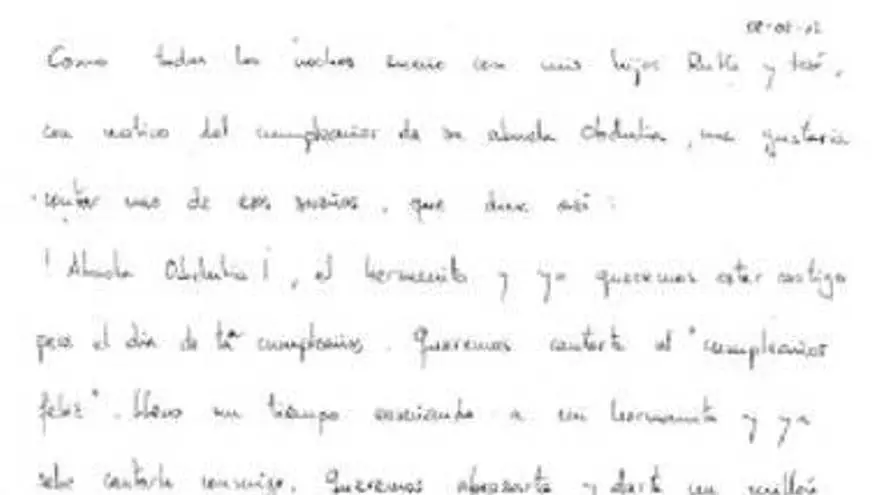 Como todas las noches sueño con mis hijos Ruth y José,
con motivo del cumpleaños de su abuela Obdulia, me gustaría
contar uno de esos sueños, que dice así:
! Abuela Obdulia !, el hermanito y yo queremos estar contigo
para el día de tu cumpleaños. Queremos cantarte el "cumpleaños
feliz". Llevo un tiempo enseñando a mi hermanito y ya
sabe cantarla conmigo. Queremos abrazarte y darte un millón